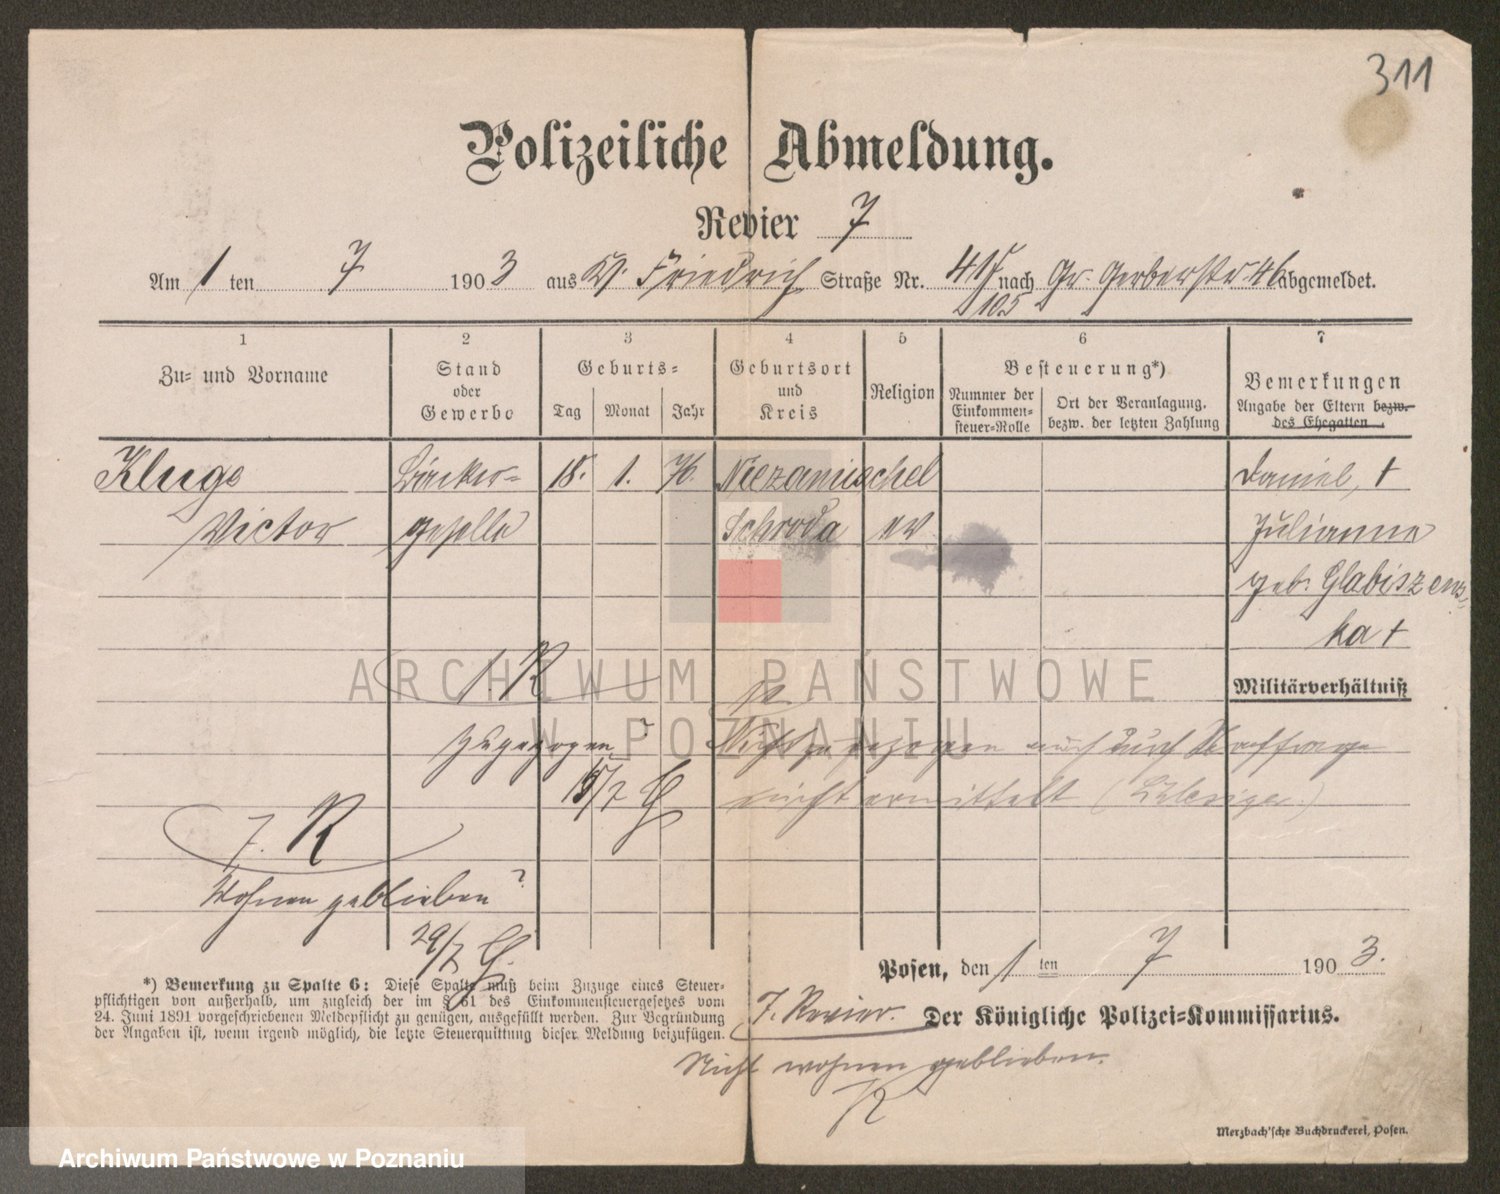 311
Polizeiliche Abmeldung.
Revier 7
Am 1 ten 7 1903 aus W. Friedrich Straße Nr. nach Gr. Gerberstr 46 abgemeldet.
105
1 2 3 4 5 6 7
Zu- und Vorname
Stand
oder
Gewerbe
Geburts-
Tag Monat Jahr
Geburtsort
und
Kreis
Religion
Besteuerung*)
Nummer der
Einkommen-
steuer-Rolle
Ort der Veranlagung,
bezw. der letzten Zahlung
Bemerkungen
Angabe der Eltern bezw.
des Ehegatten.
Kluge Bäcker= 18. 1. 76. Niezamischel Daniel, †
Victor geselle Schroda ev Julianne
geb. Glabiszens
ka †
1. R
Militärverhältniß
zugezogen?
15/7 G
nicht ermittelt
7. R
Wohnen geblieben?
29/7 G.
Posen, den 1 ten 7 1903.
7. Revier. Der Königliche Polizei-Kommissarius.
Nicht wohnen geblieben.
R
*) Bemerkung zu Spalte 6: Diese Spalte muß beim Zuzuge eines Steuer-
pflichtigen von außerhalb, um zugleich der im § 61 des Einkommensteuergesetzes vom
24. Juni 1891 vorgeschriebenen Meldepflicht zu genügen, ausgefüllt werden. Zur Begründung
der Angaben ist, wenn irgend möglich, die letzte Steuerquittung dieser Meldung beizufügen.
Merzbach'sche Buchdruckerei, Posen.
ARCHIWUM PAŃSTWOWE
W POZNANIU
Archiwum Państwowe w Poznaniu